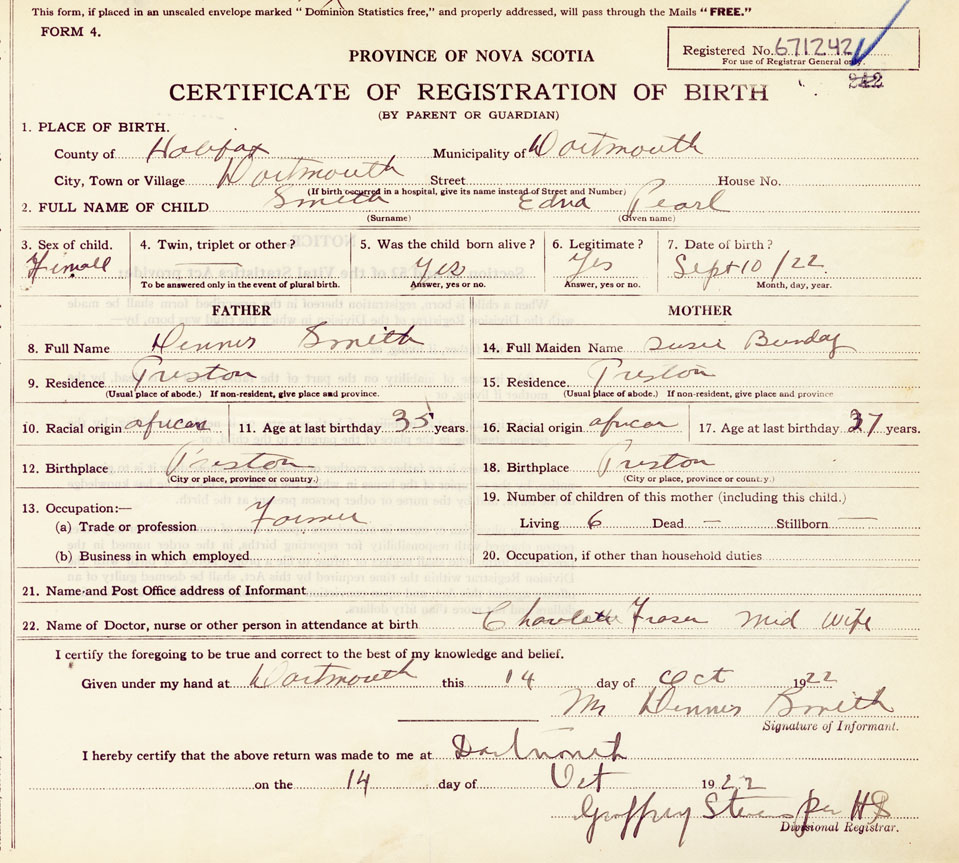 This form, if placed in an unsealed envelope marked "Dominion Statistics free," and properly addressed, will pass through the Mails "FREE."
FORM 4.
Registered No. 671242
For use of Registrar General only.
PROVINCE OF NOVA SCOTIA
242
CERTIFICATE OF REGISTRATION OF BIRTH
(BY PARENT OR GUARDIAN)
1. PLACE OF BIRTH.
County of Halifax Municipality of Dartmouth
City, Town or Village Dartmouth Street House No.
(If birth occurred in a hospital, give its name instead of Street and Number)
2. FULL NAME OF CHILD Smith Edna Pearl
(Surname) (Given name)
3. Sex of child. 4. Twin, triplet or other? 5. Was the child born alive? 6. Legitimate? 7. Date of birth?
Fimall — Yes Yes Sept 10/22
To be answered only in the event of plural birth. Answer, yes or no. Answer, yes or no. Month, day, year.
FATHER MOTHER
8. Full Name Dennis Smith 14. Full Maiden Name Susie Bunday
9. Residence Preston 15. Residence Preston
(Usual place of abode.) If non-resident, give place and province. (Usual place of abode.) If non-resident, give place and province
10. Racial origin african 11. Age at last birthday 35 years. 16. Racial origin african 17. Age at last birthday 37 years.
12. Birthplace Preston 18. Birthplace Preston
(City or place, province or country.) (City or place, province or country.)
19. Number of children of this mother (including this child.)
13. Occupation:—
(a) Trade or profession Farmer Living 6 Dead — Stillborn —
(b) Business in which employed 20. Occupation, if other than household duties
21. Name and Post Office address of Informant
22. Name of Doctor, nurse or other person in attendance at birth Charlotte Fraser Mid Wife
I certify the foregoing to be true and correct to the best of my knowledge and belief.
Given under my hand at Dartmouth this 14 day of Oct 1922
Mr Dennis Smith
Signature of Informant.
I hereby certify that the above return was made to me at Dartmouth
on the 14 day of Oct 1922
Geoffrey per HS
Divisional Registrar.